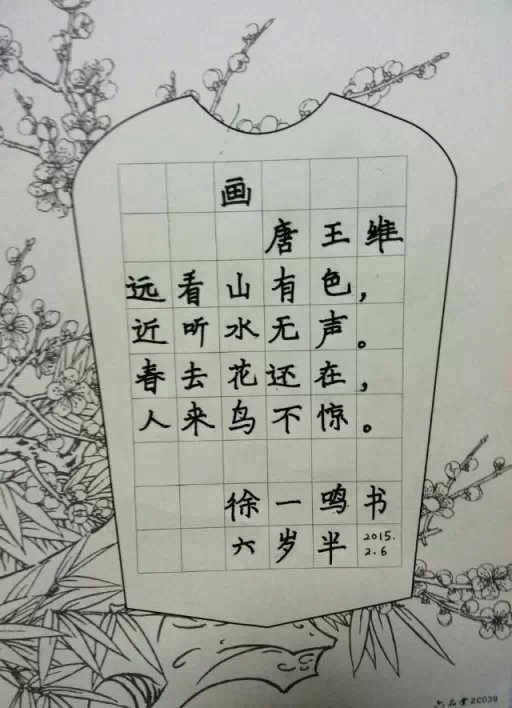 画
唐 王 维
远看山有色，
近听水无声。
春去花还在，
人来鸟不惊。
徐一鸣书
六岁半 2015.
2.6
六品堂 ZC039